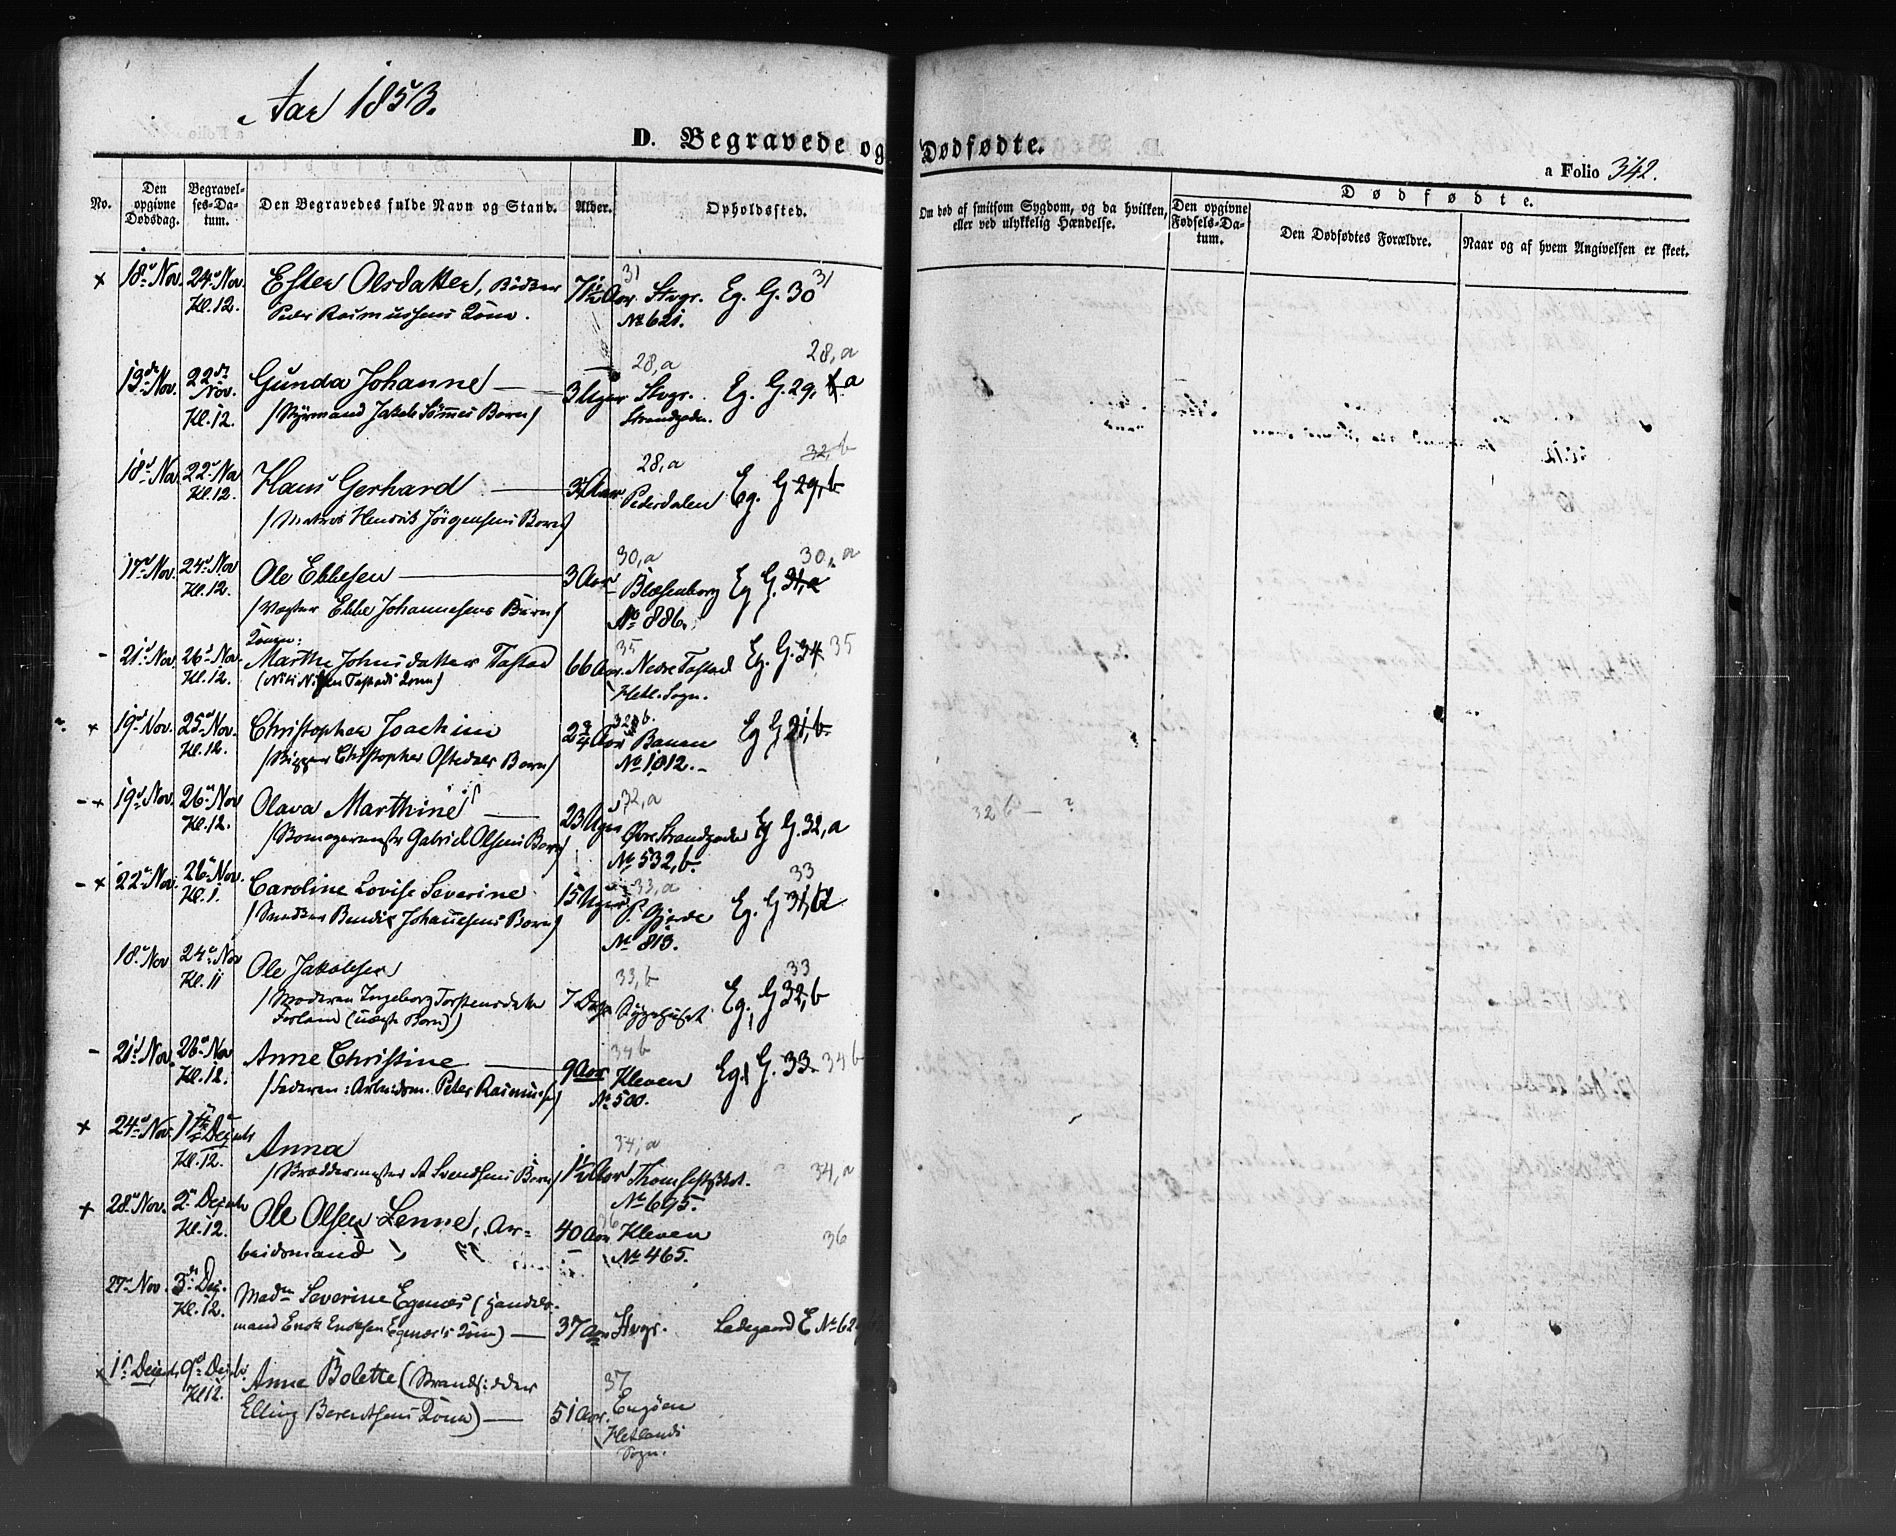 Aar 1853.
D. Begravede og Dødfødte.
a Folio 342.
No.
Den opgivne Dødsdag.
Begravel-ses-Da-tum.
Den Begravedes fulde Navn og Stand.
Alder.
Opholdssted.
Om død af smitsom Sygdom, og da hvilken, eller ved ulykkelig Hændelse.
Dødfødte.
Den opgivne Fødsels-Da-tum.
Den Dødfødtes Forældre.
Naar og af hvem Angivelsen er skeet.
31 31
+ 18. Nov. 24. Nov. Ester Olsdatter, Bødker 71½ Aar Stvgr. Eg. G. 30
Kl. 12. Peder Rasmussens Kone. No 621.
28,a 28,a
13de Nov. 22de Nov. Gunda Johanne — 3 Uger Stvgr. Eg. G. 29, a
Kl. 12. /Styrmand Jakob Sømmes Barn/ Strandgaden.
28,a 32,b
18. Nov. 22. Nov Hans Gerhard — Aar Pedersdalen Eg. G 29,b
Kl. 12. /Matros Henrik Jørgensens Barn/
30,a 30,a
17. Nov. 24. Nov Ole Ebbesen — 3 Aar Blaesenborg Eg G. 31,a
Kl. 12. /Vægter Ebbe Johannesens Barn/ No 886.
Konen: 35
- 21. Nov. 26. Nov. Marthe Johnsdatter Tastad 66 Aar. Nedre Tastad Eg. G. 34 35
Kl. 12. (Nils Nilsen Tastads Kone) Hetl. Sogn.
+ 19. Nov. 25. Nov. Christopher Joachim 2¾ Aar Banen Eg G 21,b
Kl. 12. /Rigger Christopher Oftedals Barn/ No 1012.
32,a
- + 19. Nov. 26. Nov Olava Marthine — 23 Uger Øvre Strandgade Eg G. 32,a
Kl. 12. Gabriel Olsens Barn/ No 532,b.
33,a 33
- + 22. Nov. 26. Nov. Caroline Lovise Severine 15 Uger Gjerde Eg. G 31,b
Kl. 1. /Snedker Bendix Johannesens Barn/ No 813.
33,b 33
18. Nov 24. Nov Ole Jakobsen 7 Dage Sygehuset Eg. G 32,b
Kl. 11 /Moderen Ingeborg Torstensdatter
Forland (uægte Barn)/
34 b
- 21. Nov. 26. Nov Anne Christine — 9 Aar Kleven Eg. G. 33. 34 b
Kl. 12. /Faderen: Arbeidsm. Peter Rasmussen/ No 500.
34,a
+ 24. Nov. 1ste Decemb Anna 1½ Aar 34,a
Kl. 12. A Svendsens Barn/ No 695.
36
+ 28. Nov. 2. Decemb Ole Olsen Lenne, Ar- 40 Aar Kleven 36
Kl. 12. beidsmand No 465.
27. Nov. 3de Dec. Madm Severine Egenæs (Handels-
Kl. 12. mand Enok Enoksen Egenæs's Kone) — 37 Aar Stvgr. Ladegaard E No 62
37
+ 1. Decemb. 9. Decb. Anne Bolette (Strandsidder
Kl 12. Elling Berentsens Kone) — 51 Aar. Engøen
Hetlands
Sogn.
32 b — ?